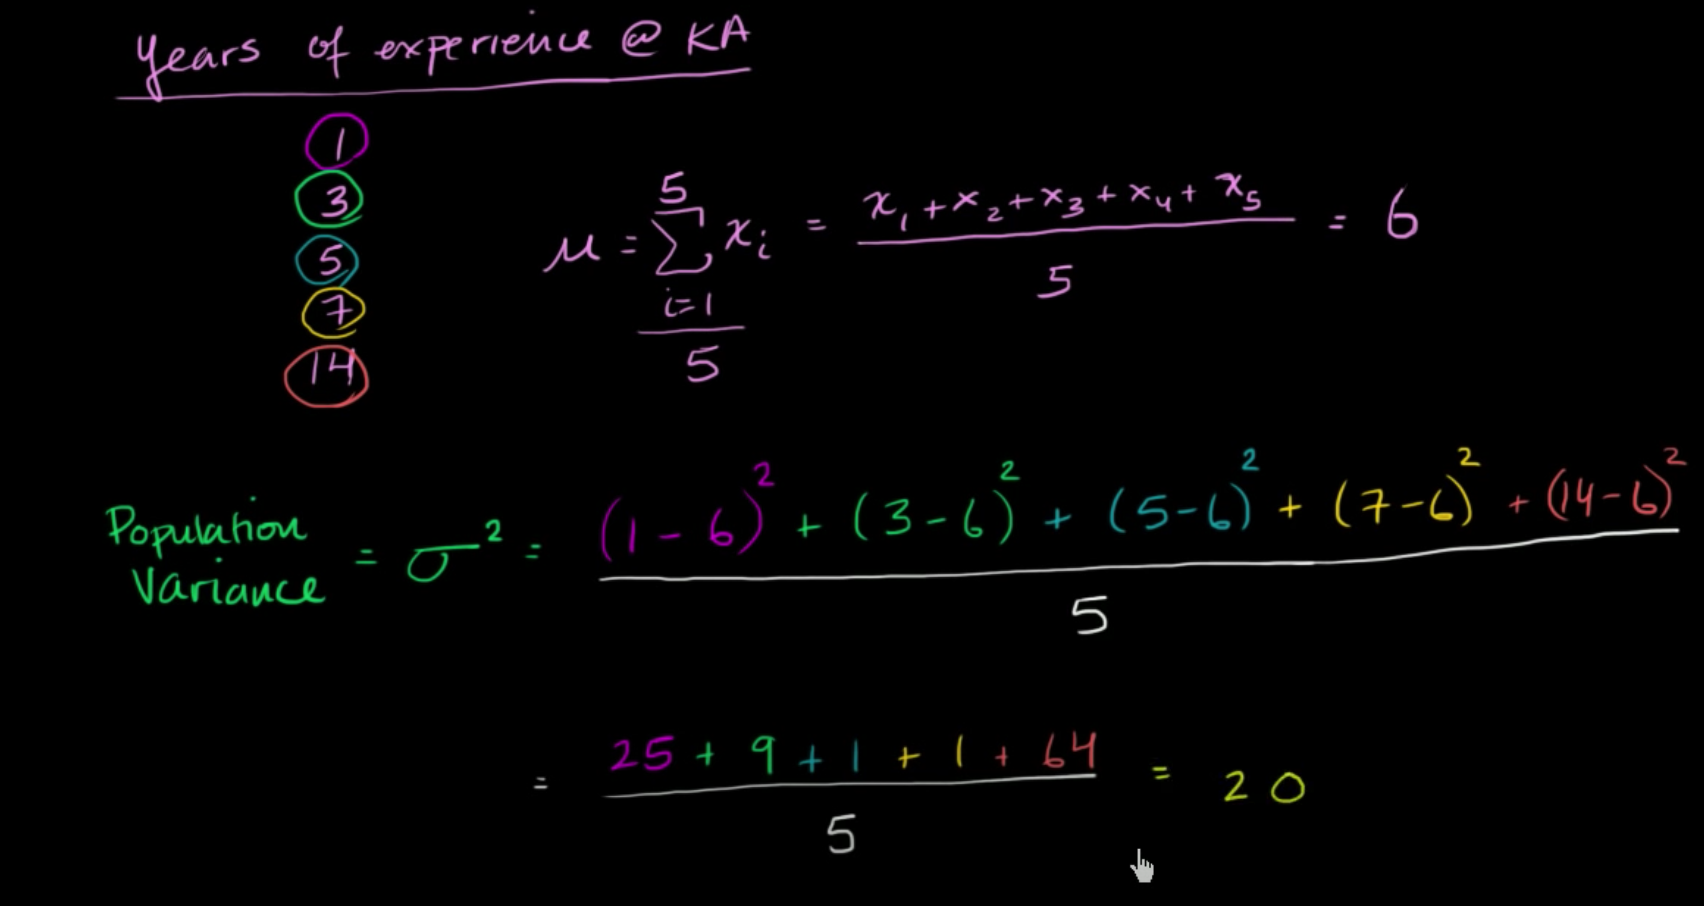 years of experience @ KA
1
3
5
7
14
μ = 5 ∑ i=1 xᵢ / 5 = x₁+x₂+x₃+x₄+x₅ / 5 = 6
Population Variance = σ² = (1-6)² + (3-6)² + (5-6)² + (7-6)² + (14-6)² / 5
= 25 + 9 + 1 + 1 + 64 / 5 = 20